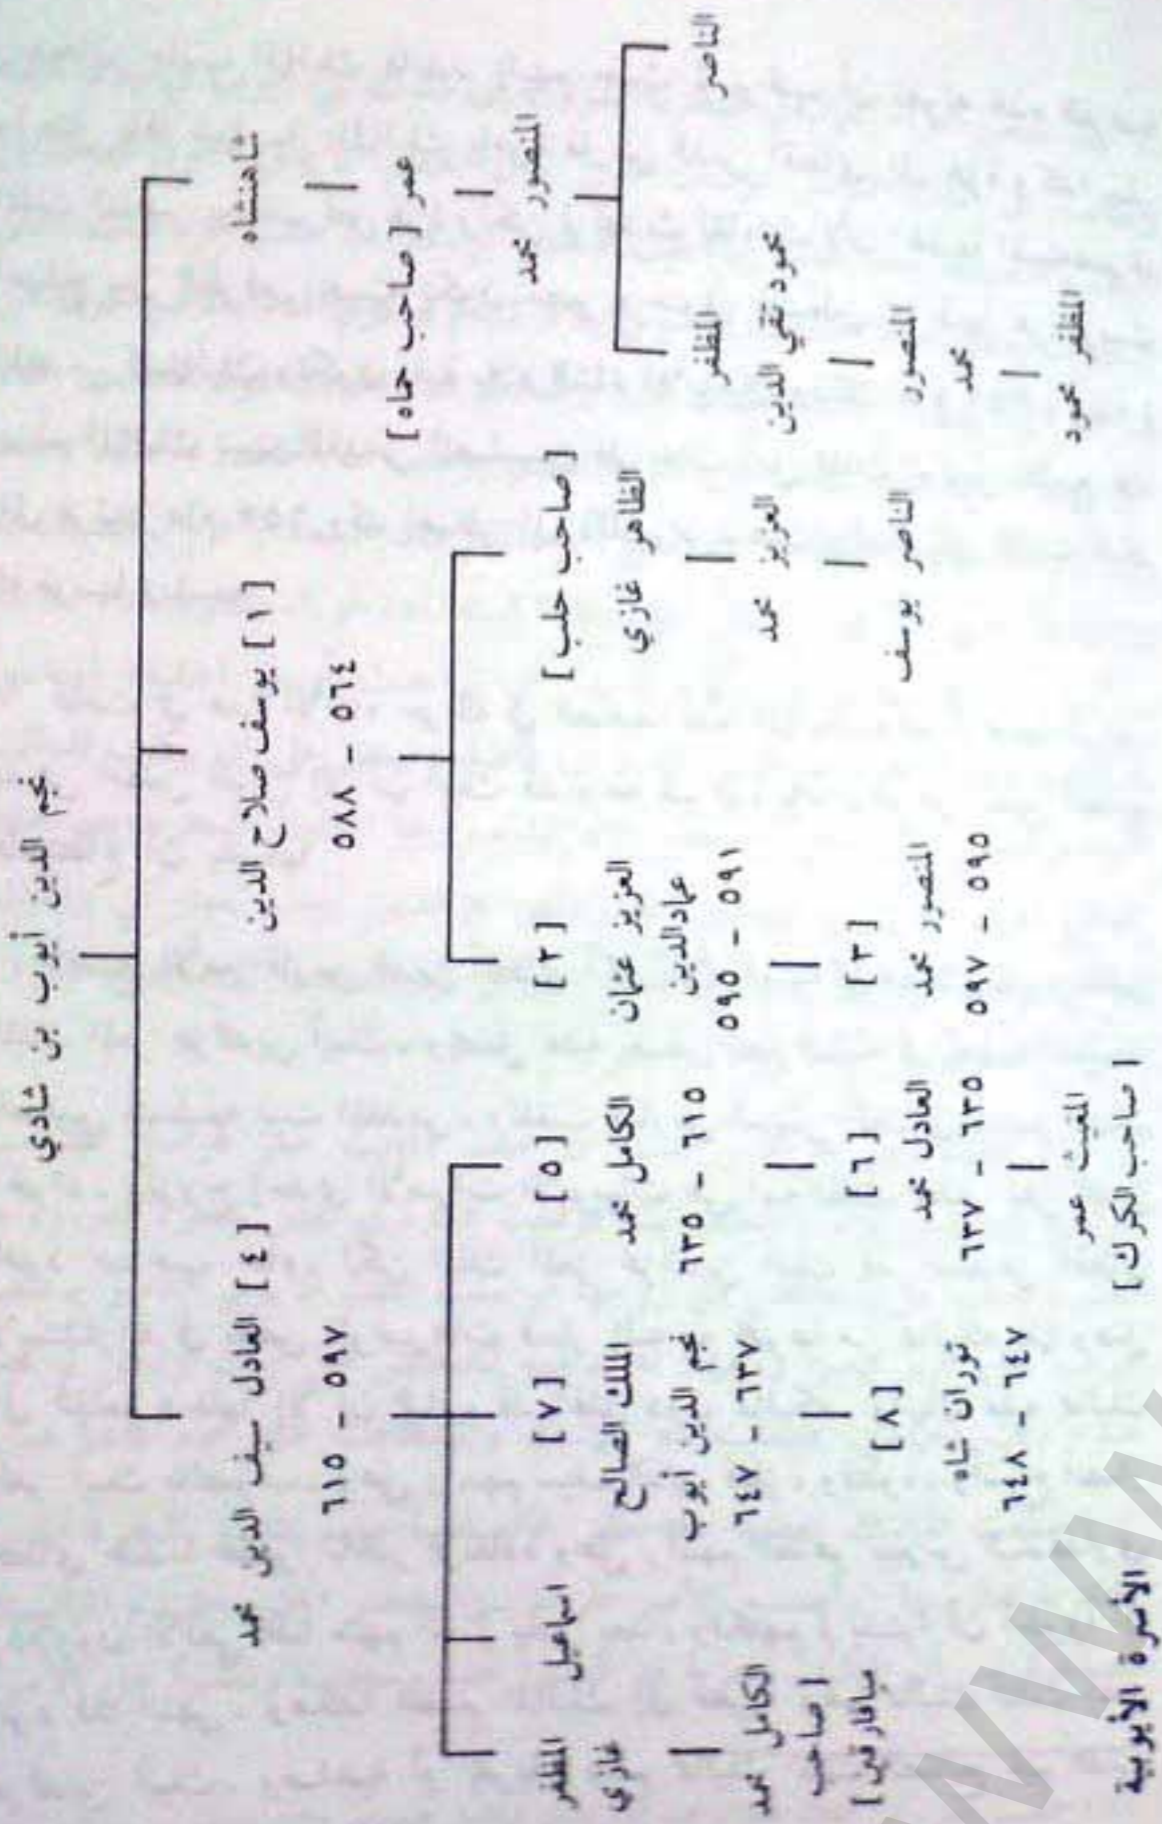 نجم الدين أيوب بن شادي
شاهنشاه
[ ١ ] يوسف صلاح الدين
٥٦٤ – ٥٨٨
[ ٤ ] العادل سيف الدين محمد
٥٩٧ – ٦١٥
عمر [ صاحب حماه ]
المنصور محمد
الناصر
المظفر
محمود تقي الدين
المنصور
محمد
المظفر محمود
[ صاحب حلب ]
الظاهر غازي
العزيز محمد
الناصر يوسف
[ ٢ ]
العزيز عثمان
عماد الدين
٥٩١ – ٥٩٥
[ ٣ ]
المنصور محمد
٥٩٥ – ٥٩٧
[ ٥ ]
الكامل محمد
٦١٥ – ٦٣٥
[ ٦ ]
العادل محمد
٦٣٥ – ٦٣٧
المغيث عمر
[ صاحب الكرك ]
[ ٧ ]
الملك الصالح
نجم الدين أيوب
٦٣٧ – ٦٤٧
[ ٨ ]
توران شاه
٦٤٧ – ٦٤٨
اسماعيل
المظفر
غازي
الكامل محمد
[ صاحب
ميافارقين ]
الأسرة الأيوبية
www